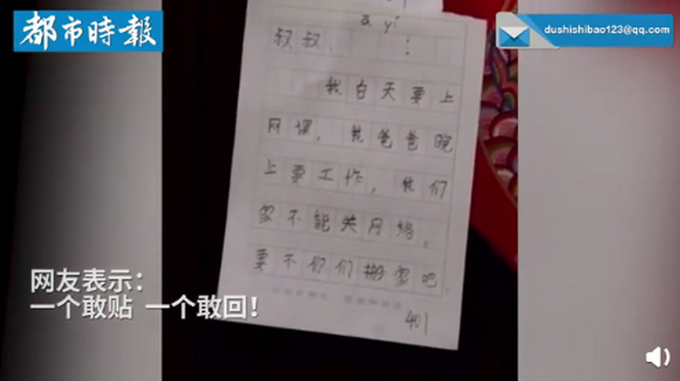 都市時報
dushishibao123@qq.com
ā yí
叔叔、 ：
我白天要上
网课，我爸爸晚
上要工作，我们
家不能关网络。
要不你们搬家吧。
401
网友表示：
一个敢贴 一个敢回！